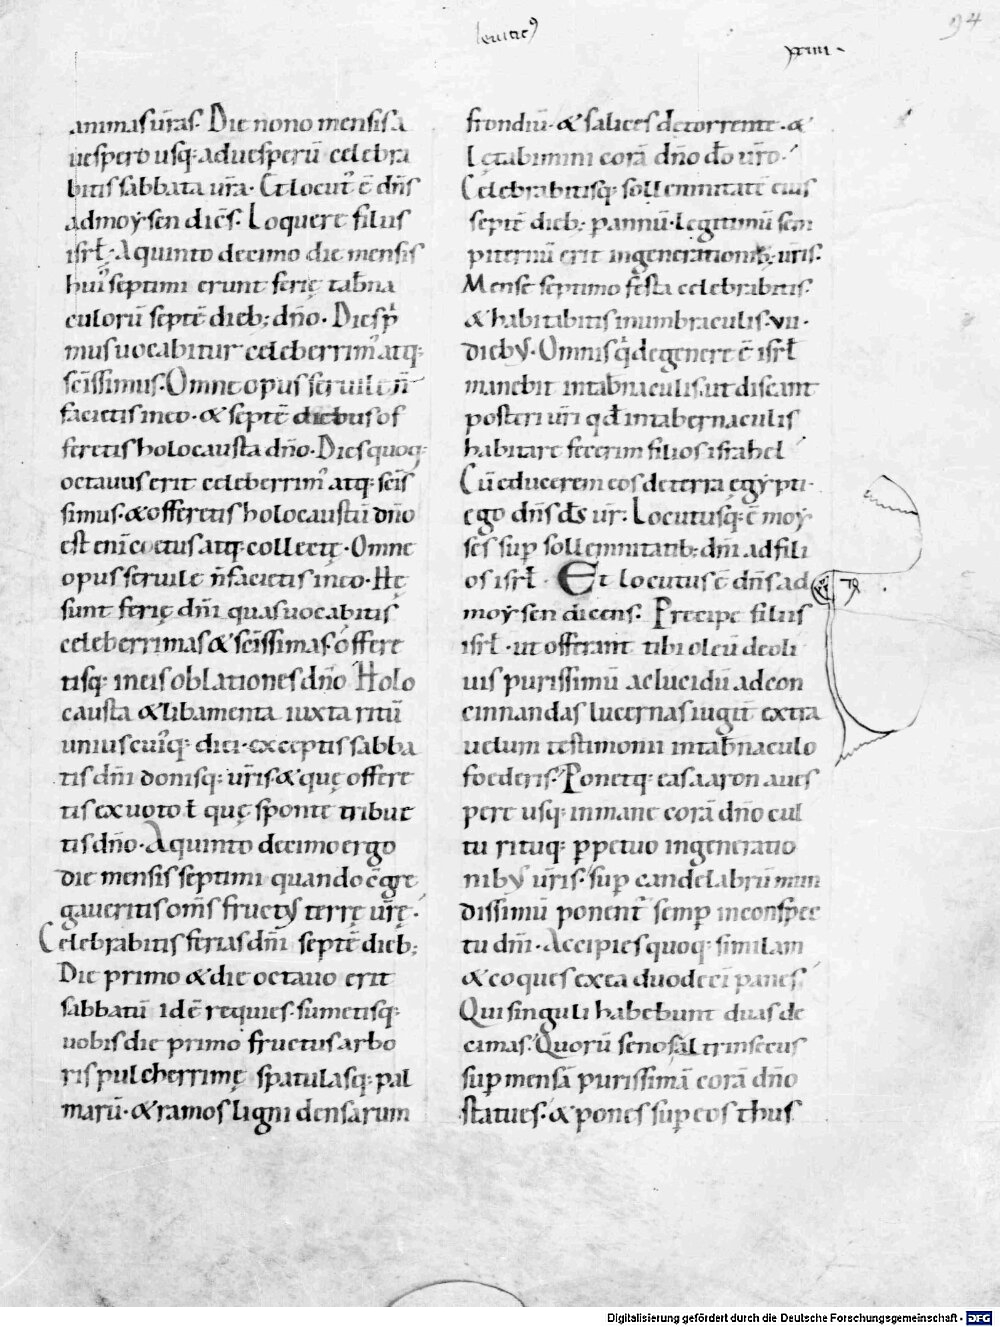 leuitic᷒
94
xxiiii·
animas ur̄as. Die nono mensis a
uespero usq; ad uesperū celebra
bitis sabbata ur̄a. Et locut᷒ ē dn̄s
ad moẏsen dicēs. Loquere filiis
isrƚ. A quinto decimo die mensis
hui᷒ septimi erunt ferię tab̄na
culorū septē dieb; dn̄o. Dies p̄
mus uocabitur celeberrim᷒ atq;
sc̄issimus. Omne opus seruile n̄
facietis in eo. & septē diebus of
feretis holocausta dn̄o. Dies quoq;
octauus erit celeberrim᷒ atq; sc̄is
simus. & offeretis holocaustū dn̄o
est eni̅ coetus atq; collectę. Omne
opus seruile n̄ facietis in eo. Hę
sunt ferię dn̄i quas uocabitis
celeberrimas & sc̄issimas. offere
tisq; in eis oblationes dn̄o Holo
causta & libamenta iuxta ritū
unius cui᷒q; diei. exceptis sabba
tis dn̄i donisq; ur̄is. & quę offere
tis ex uoto ƚ quę sponte tribue
tis dn̄o. A quinto decimo ergo
die mensis septimi quando cōgre
gaueritis om̄s fruct᷒ terrę ur̄ę.
Celebrabitis ferias dn̄i septē dieb;
Die primo & die octauo erit
sabbatū idē requies. sumetisq;
uobis die primo fructus arbo
ris pulcherrimę spatulasq; pal
marū. & ramos ligni densarum
frondiū. & salices de torrente. &
lętabimini corā dn̄o dō ur̄o.
Celebrabitisq; sollemnitatē eius
septē dieb; p annū. legitimū sem
piternū erit in generationib; ur̄is.
Mense septimo festa celebrabitis.
& habitabitis in umbraculis. vii.
dieb᷒. Omnis qi de genere ē isrƚ
manebit in tab̄naculis. ut discant
posteri ur̄i qđ in tabernaculis
habitare fecerim filios israhel
Cū educerem eos de terra egẏpti.
ego dn̄s dš ur̄. Locutusq; ē moẏ
ses sup sollemnitatib; dn̄i ad fili
os isrƚ. Et locutus ē dn̄s ad
moẏsen dicens. Precipe filiis
isrƚ. ut offerant tibi oleū de oli
uis purissimū ac lucidū ad con
cinnandas lucernas iugit̄ extra
uelum testimonii in tab̄naculo
foederis. Ponetq; eas aaron a ues
pere usq; in mane corā dn̄o cul
tu rituq; ppetuo in generatio
nib᷒ ur̄is. sup candelabrū mun
dissimū ponent̄ semp in conspec
tu dn̄i. Accipies quoq; similam
& coques ex ea duodeci̅ panes.
Qui singuli habebunt duas de
cimas. Quorū senos altrinsecus
sup mensā purissimā corā dn̄o
statues. & pones sup eos thus
Digitalisierung gefördert durch die Deutsche Forschungsgemeinschaft - DFG